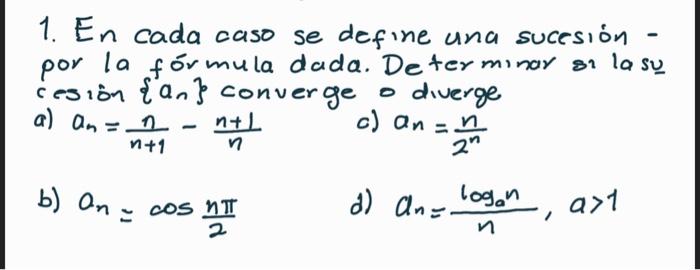 1. En cada caso se define una sucesión -
por la fórmula dada. Determinar si la su
cesión {an} converge o diverge
a) an = n/n+1 - n+1/n c) an = n/2^n
b) an = cos nπ/2 d) an = logₐn/n, a>1